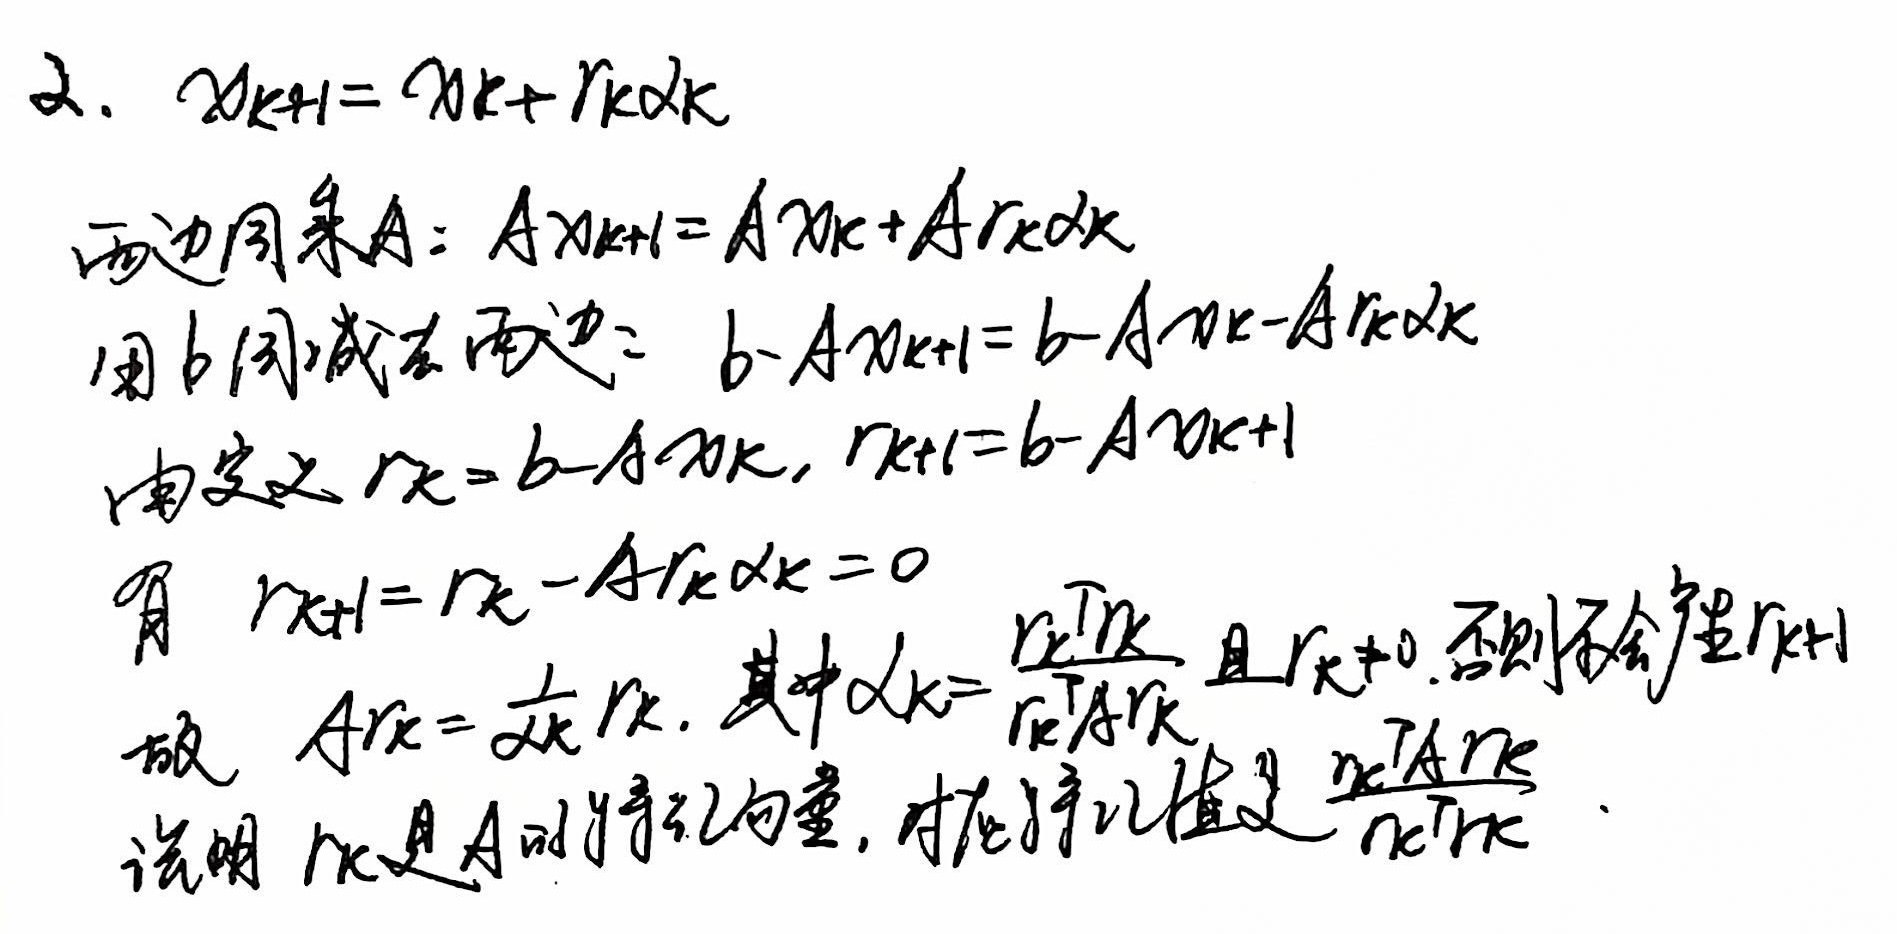 2. x_{k+1} = x_k + r_kα_k
两边同乘A: Ax_{k+1} = Ax_k + Ar_kα_k
用b同减去两边: b-Ax_{k+1} = b-Ax_k-Ar_kα_k
由定义 r_k = b-Ax_k, r_{k+1} = b-Ax_{k+1}
有 r_{k+1} = r_k - Ar_kα_k = 0
故 Ar_k = \frac{1}{α_k} r_k. 其中α_k = \frac{r_k^T r_k}{r_k^T A r_k} 且r_k≠0.否则不会产生r_{k+1}
说明 r_k是A的特征向量, 对应特征值是 \frac{r_k^T A r_k}{r_k^T r_k} .